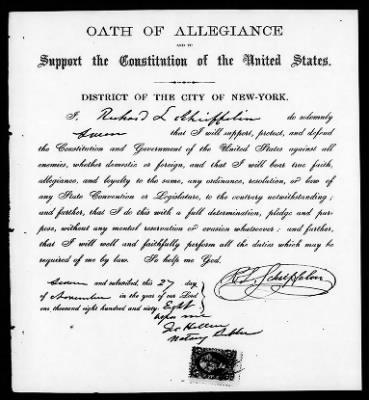 OATH OF ALLEGIANCE
AND TO
Support the Constitution of the United States.
DISTRICT OF THE CITY OF NEW-YORK.
I, Richard L Schieffelin do solemnly
swear that I will support, protect, and defend
the Constitution and Government of the United States against all
enemies, whether domestic or foreign, and that I will bear true faith,
allegiance, and loyalty to the same, any ordinance, resolution, or law of
any State Convention or Legislature, to the contrary notwithstanding;
and further, that I do this with a full determination, pledge and pur-
pose, without any mental reservation or evasion whatsoever: and further,
that I will well and faithfully perform all the duties which may be
required of me by law. So help me God.
R L Schieffelin
Sworn and subscribed, this 27 day
of November in the year of our Lord
one thousand eight hundred and sixty Eight
before me
Notary Public